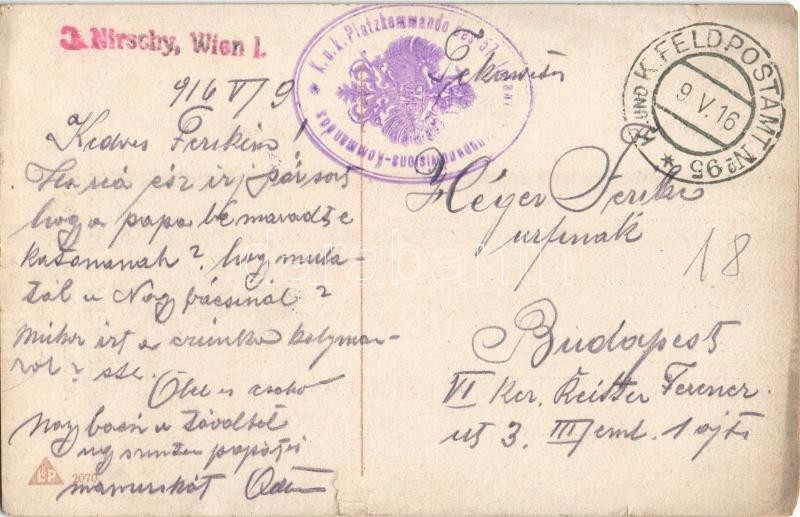 J. Nirschy, Wien I.
K.u.k. Platzkommando des 57.
Divisions-Kommandos
K. UND K. FELDPOSTAMT No 95
9.V.16
916 V/9
Kedves Ferikém!
érsz írj pár sort
hogy a papa bé maradt e
katonának? hogy mula-
tál a Nagy bácsinál?
mikor írt a
? stb.
Ölel és csókol
Nagy bácsi a távolból
úgy szintén papát és
mamuskát Ödön
Héger Ferike
urfinak
18
Budapest
VI ker. Ferenc
ut 3. III em. 1 ajtó
L&P
2070
darabanth